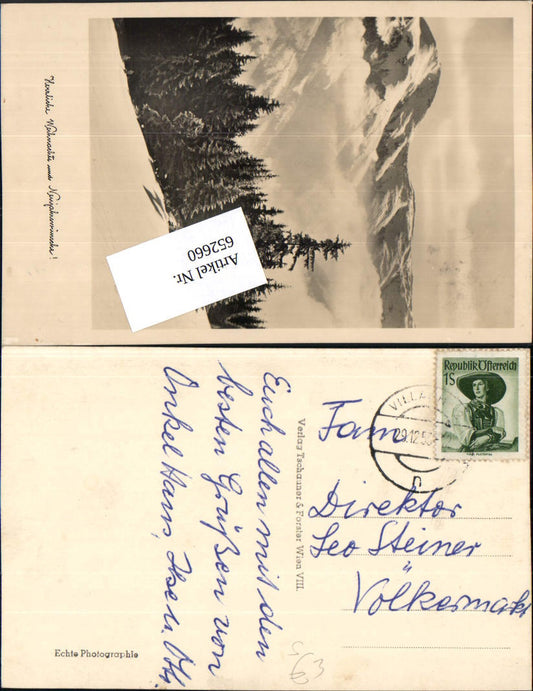 Herzliche Weihnachts und Neujahrswünsche!
Artikel Nr.
652660
Euch allen mit den
besten Grüßen von
Onkel Hans, Ilse u.
Echte Photographie
Verlag Tschanner & Forster Wien VIII.
Republik Österreich
1S
VILLA
29.12.5
Fam
Direktor
Leo Steiner
Völkermarkt